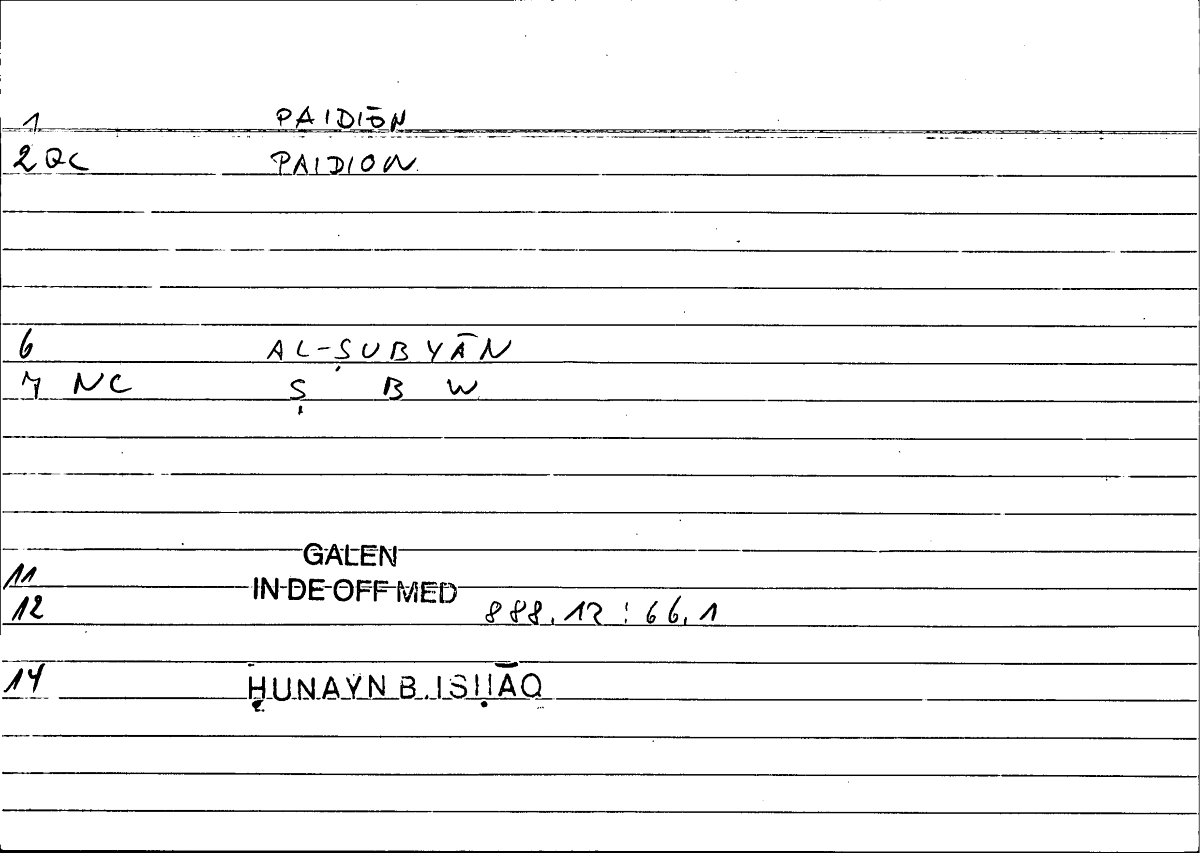 1 PAIDIŌN
2 QC PAIDION
6 AL-ṢUBYĀN
7 NC Ṣ B W
GALEN
11 IN DE OFF MED
12 888.12 : 66.1
14 ḤUNAYN B. ISḤĀQ